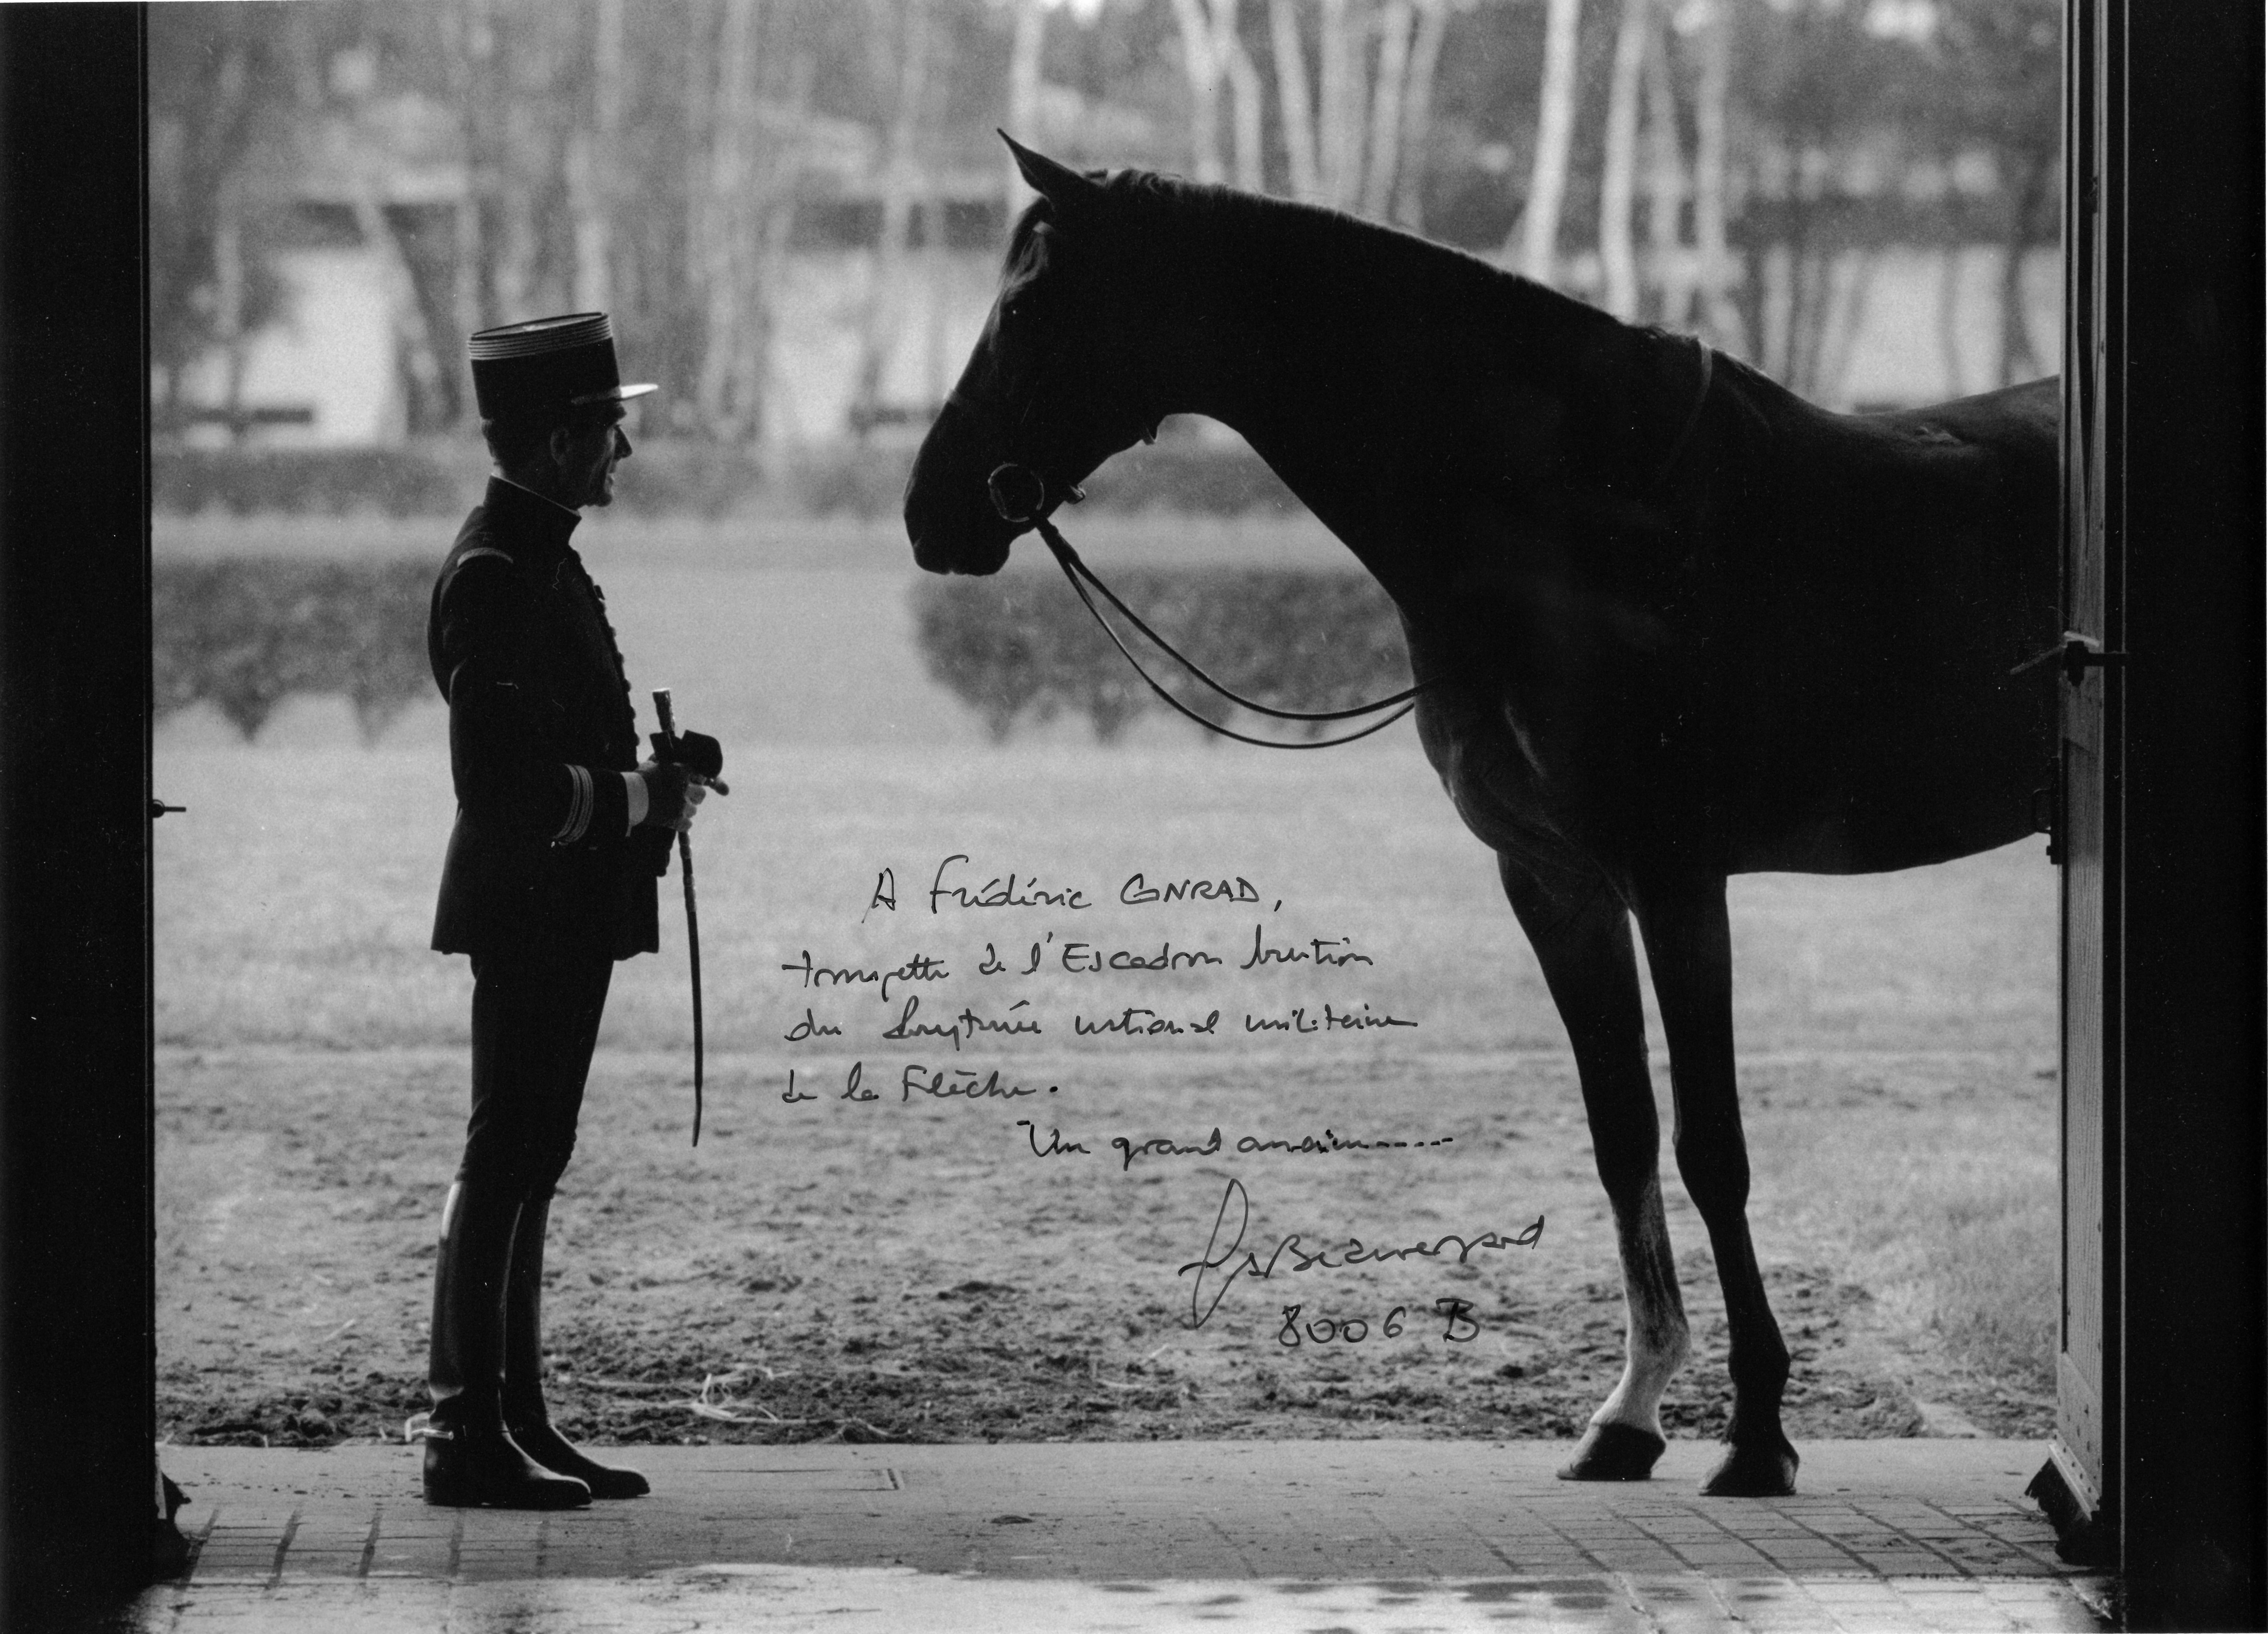 A Frédéric CONRAD,
trompette de l'Escadron brution
du Prytanée national militaire
de la Flèche.
Un grand ancien.....
Beauregard
8006 B